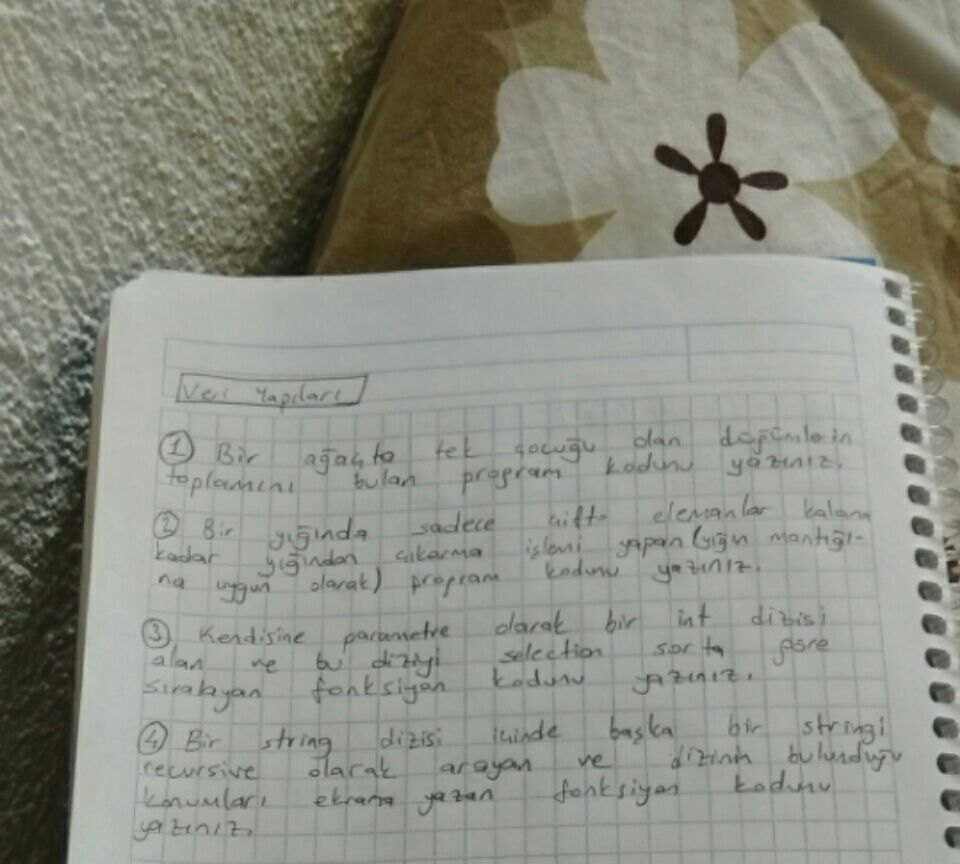 Veri Yapıları
① Bir ağaçta tek çocuğu olan düğümlerin
toplamını bulan program kodunu yazınız.
② Bir yığında sadece çift elemanlar kalana
kadar yığından çıkarma işlemi yapan (yığın mantığı-
na uygun olarak) program kodunu yazınız.
③ Kendisine parametre olarak bir int dizisi
alan ve bu diziyi selection sorta göre
sıralayan fonksiyon kodunu yazınız.
④ Bir string dizisi içinde başka bir stringi
recursive olarak arayan ve dizinin bulunduğu
konumları ekrana yazan fonksiyon kodunu
yazınız.